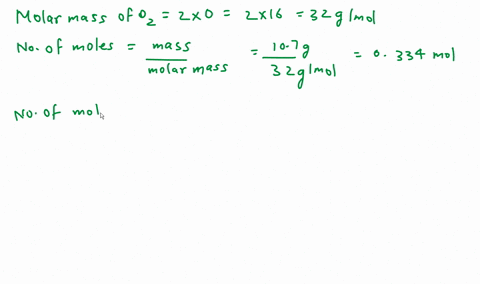 Molar mass of O2 = 2×O = 2×16 = 32 g/mol
No. of moles = mass / molar mass = 10.7g / 32 g/mol = 0.334 mol
No. of mol